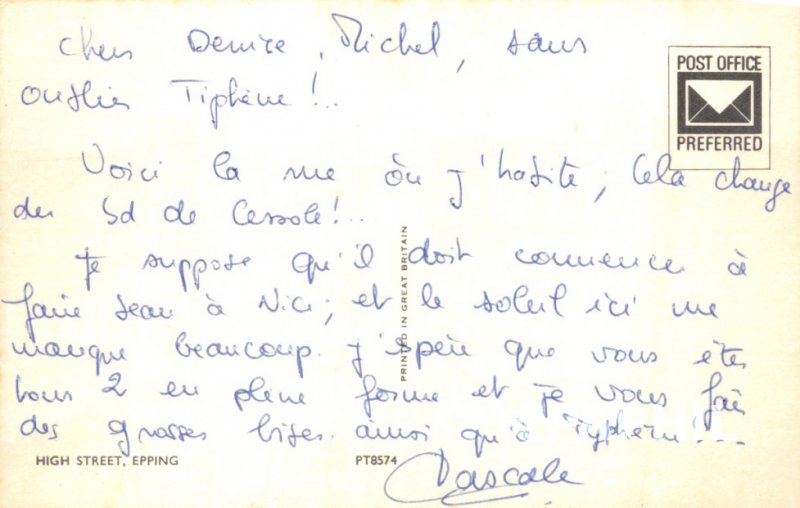 Chers Denise, Michel, sans
oublier Tiphène !..
POST OFFICE
PREFERRED
Voici la rue où j'habite, Cela change
du Bd de Cessole !..
Je suppose qu'il doit commencer à
faire beau à Nice ; et le soleil ici me
manque beaucoup. J'espère que vous êtes
tous 2 en pleine forme et je vous fais
des grosses bises ainsi qu'à Typhène !...
Pascale
HIGH STREET, EPPING
PT8574
PRINTED IN GREAT BRITAIN